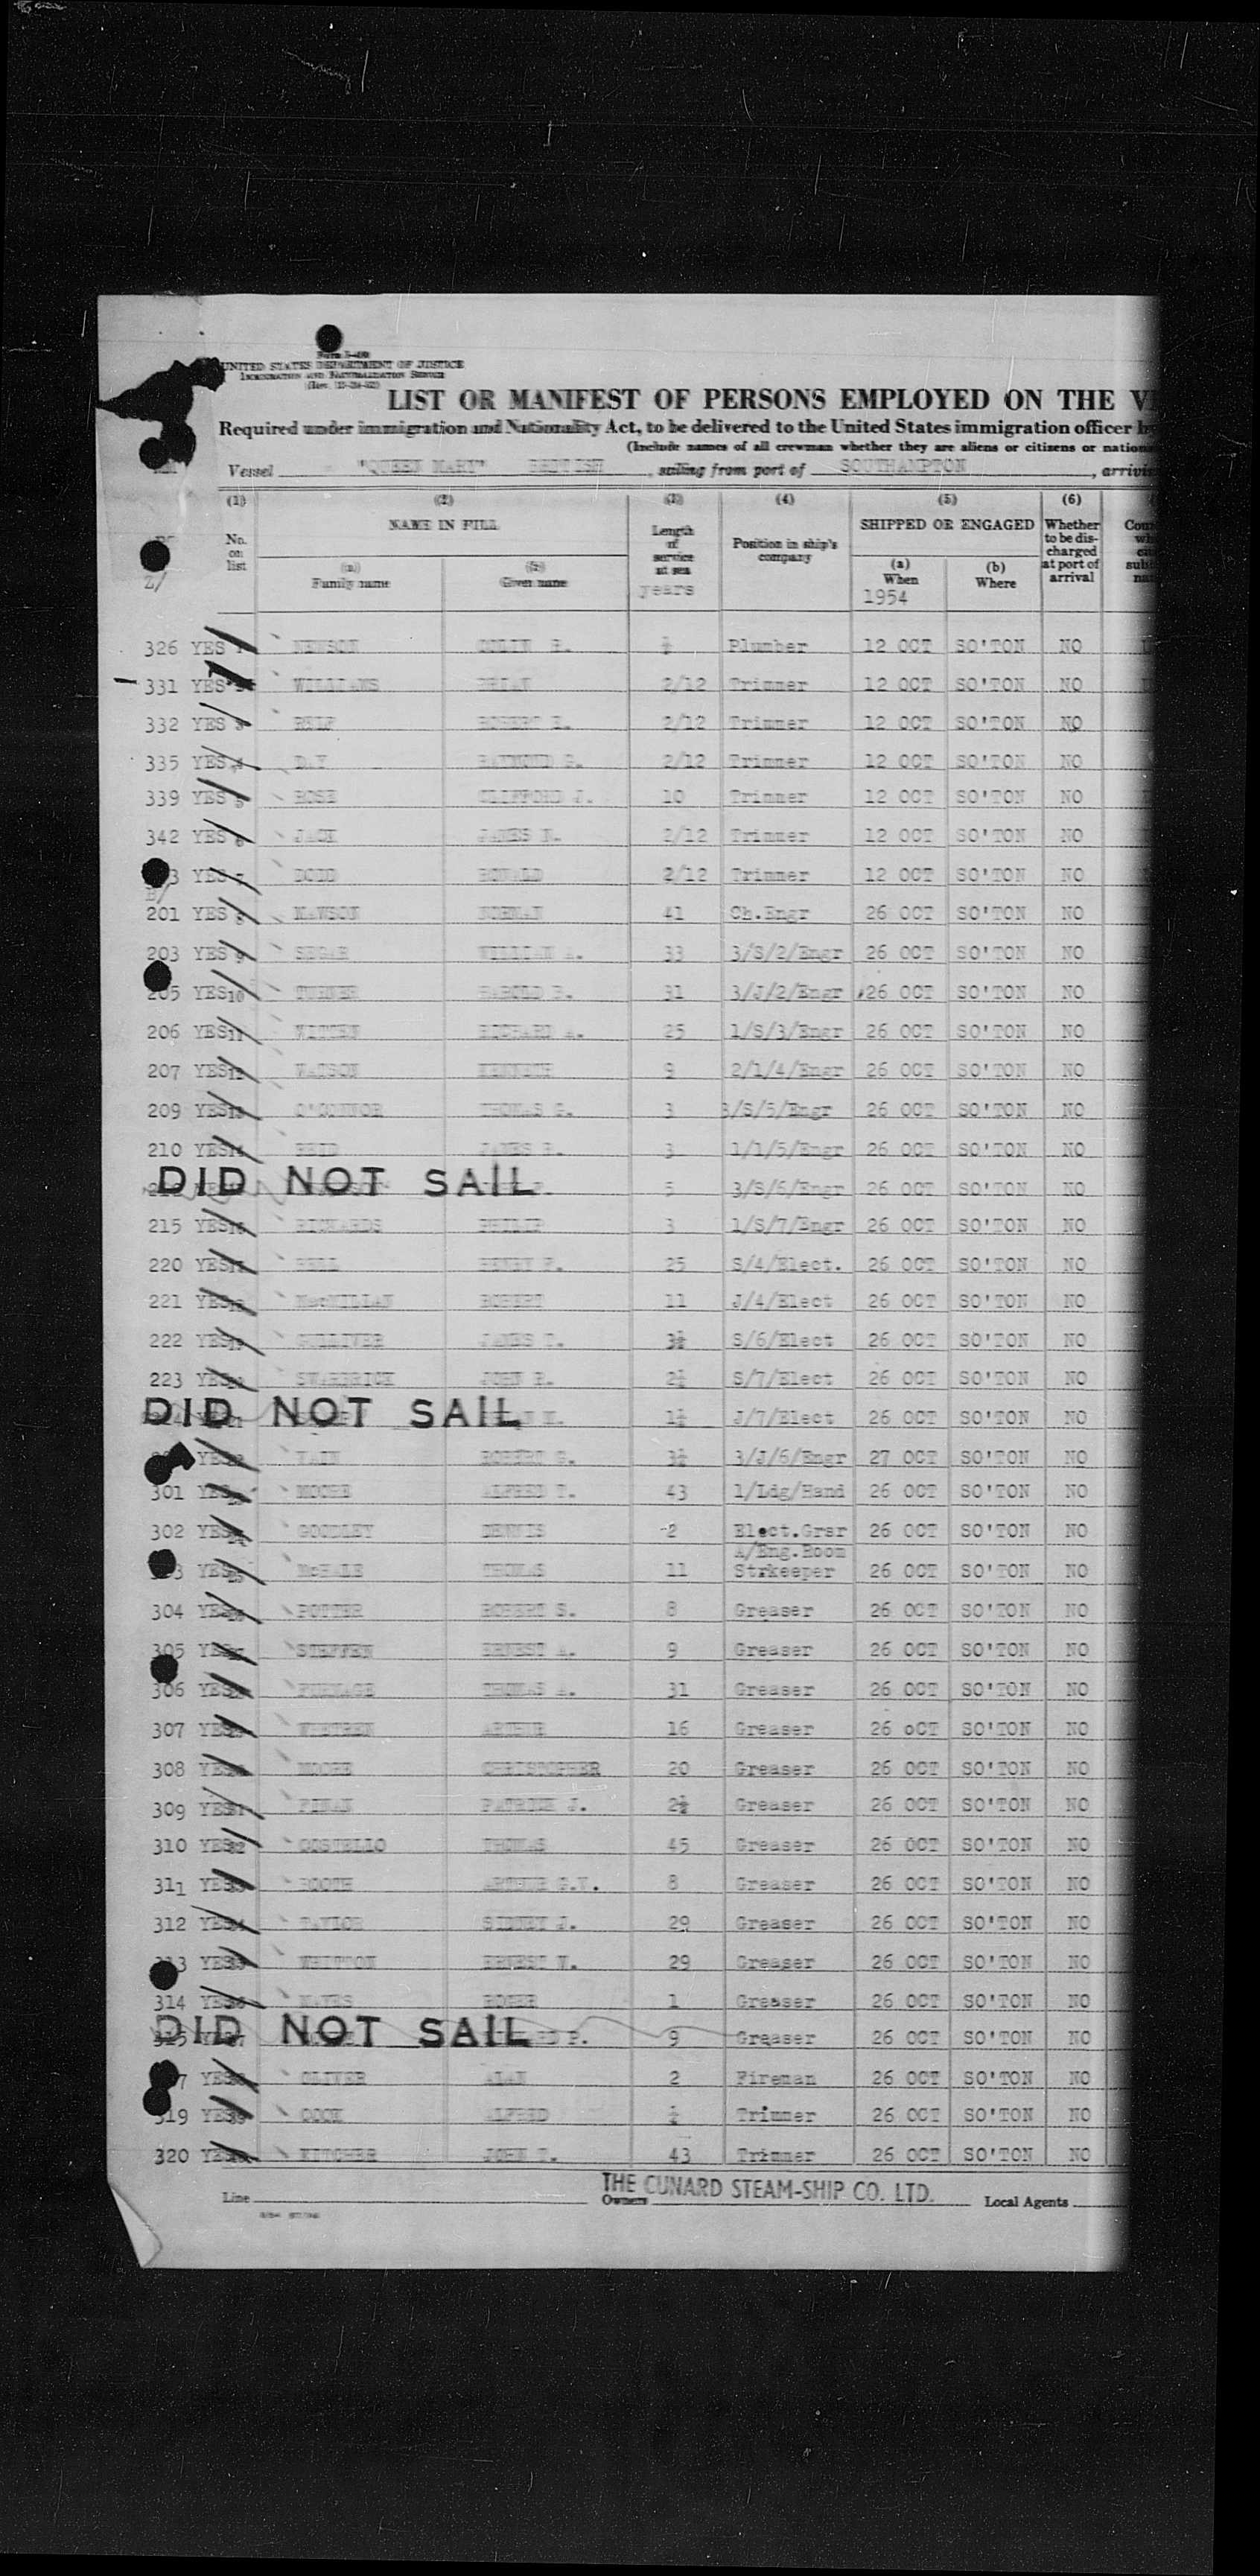 UNITED STATES DEPARTMENT OF JUSTICE
IMMIGRATION AND NATURALIZATION SERVICE
LIST OR MANIFEST OF PERSONS EMPLOYED ON THE
Required under immigration and Nationality Act, to be delivered to the United States immigration officer
(Include names of all crewman whether they are aliens or citizens or
Vessel "QUEEN MARY" BRITISH, sailing from port of SOUTHAMPTON,
(1) (2) (3) (4) (5) (6)
No. on list NAME IN FULL Length of service at sea Position in ship's company SHIPPED OR ENGAGED Whether to be discharged at port of arrival
(a) Family name (b) Given name years (a) When 1954 (b) Where
326 YES NEWSON COLIN Plumber 12 OCT SO'TON NO
331 YES WILLIAMS BRIAN 2/12 Trimmer 12 OCT SO'TON NO
332 YES ROBERT 2/12 Trimmer 12 OCT SO'TON NO
335 YES DAY RAYMOND 2/12 Trimmer 12 OCT SO'TON NO
339 YES 5 ROSE CLIFFORD J. 10 Trimmer 12 OCT SO'TON NO
342 YES 6 JACK JAMES 2/12 Trimmer 12 OCT SO'TON NO
3 YES 7 DODD RONALD 2/12 Trimmer 12 OCT SO'TON NO
201 YES MAWSON NORMAN 41 Ch.Engr 26 OCT SO'TON NO
203 YES 9 SEGAR WILLIAM A. 33 3/S/2/Engr 26 OCT SO'TON NO
205 YES10 TURNER HAROLD 31 3/J/2/Engr 26 OCT SO'TON NO
206 YES11 WITTEN RICHARD A. 25 1/S/3/Engr 26 OCT SO'TON NO
207 YES12 WATSON KENNETH 9 2/1/4/Engr 26 OCT SO'TON NO
209 YES13 O'CONNOR THOMAS 3 3/S/5/Engr 26 OCT SO'TON NO
210 YES14 REID JAMES 3 1/1/5/Engr 26 OCT SO'TON NO
DID NOT SAIL 5 3/S/6/Engr 26 OCT SO'TON NO
215 YES16 RICHARDS PHILIP 3 1/S/7/Engr 26 OCT SO'TON NO
220 YES17 BELL HENRY 25 S/4/Elect. 26 OCT SO'TON NO
221 YES MacMILLAN ROBERT 11 J/4/Elect 26 OCT SO'TON NO
222 YES19 GULLIVER JAMES 3½ S/6/Elect 26 OCT SO'TON NO
223 YES SWARBRICK JOHN 2½ S/7/Elect 26 OCT SO'TON NO
DID NOT SAIL 1½ J/7/Elect 26 OCT SO'TON NO
YES ROBERT G. 3½ 3/J/6/Engr 27 OCT SO'TON NO
301 YES MOORE ALFRED 43 1/Ldg/Hand 26 OCT SO'TON NO
302 YES GOODLEY DENNIS 2 Elect.Grsr 26 OCT SO'TON NO
A/Eng.Room
3 YES McHALE THOMAS 11 Strkeeper 26 OCT SO'TON NO
304 YES POTTER ROBERT S. 8 Greaser 26 OCT SO'TON NO
305 YES STEFFEN ERNEST A. 9 Greaser 26 OCT SO'TON NO
306 YES FURNAGE THOMAS A. 31 Greaser 26 OCT SO'TON NO
307 YES ARTHUR 16 Greaser 26 oCT SO'TON NO
308 YES MOORE CHRISTOPHER 20 Greaser 26 OCT SO'TON NO
309 YES31 PATRICK J. 2½ Greaser 26 OCT SO'TON NO
310 YES32 COSTELLO THOMAS 45 Greaser 26 OCT SO'TON NO
311 YES BOOTH ARTHUR G.V. 8 Greaser 26 OCT SO'TON NO
312 YES34 TAYLOR SIDNEY J. 29 Greaser 26 OCT SO'TON NO
313 YES35 WHITTON ERNEST W. 29 Greaser 26 OCT SO'TON NO
314 YES36 ROGER 1 Greaser 26 OCT SO'TON NO
DID NOT SAIL 9 Greaser 26 OCT SO'TON NO
7 YES OLIVER ALAN 2 Fireman 26 OCT SO'TON NO
319 YES39 COOK ALFRED Trimmer 26 OCT SO'TON NO
320 YES WITCHER JOHN T. 43 Trimmer 26 OCT SO'TON NO
Line Owners THE CUNARD STEAM-SHIP CO. LTD. Local Agents